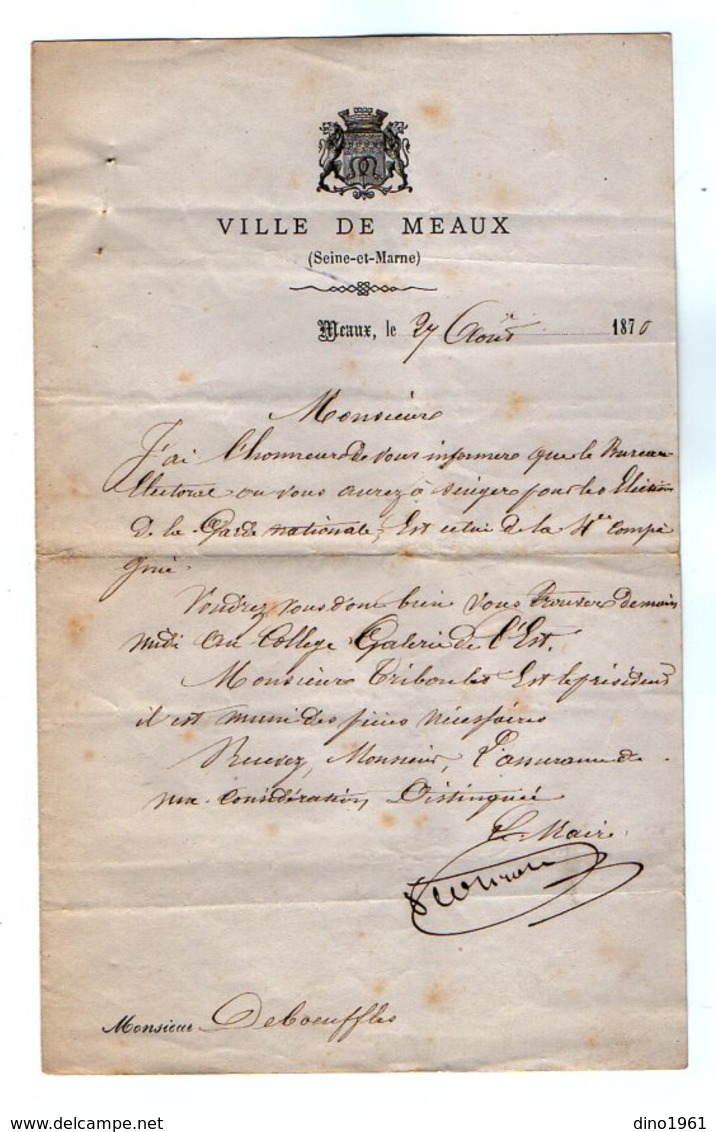 VILLE DE MEAUX
(Seine-et-Marne)
Meaux, le 27 Aout 1870
Monsieur
J'ai l'honneur de vous informer que le Bureau
Electoral ou vous aurez à sieger pour les Election
de la Garde nationale, Est celui de la 4e compa
gnie.
Voudrez vous donc bien vous trouver demain
midi au College Galerie de l'Est.
Monsieur Triboulet Est le président
il est muni des pièces nécessaires
Recevez, Monsieur, l'assurance de
ma considération Distinguée
Le Maire
Monsieur Deboeuffles
dino1961